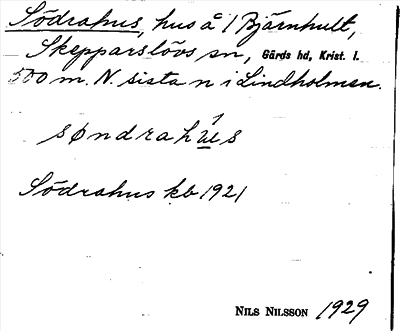 Södrahus, hus å 1 Bjärnhult,
Skepparslövs sn, Gärds hd, Krist. l.
500 m. N. sista n i Lindholmen.
søndrahú̲s
Södrahus kb 1921
NILS NILSSON 1929